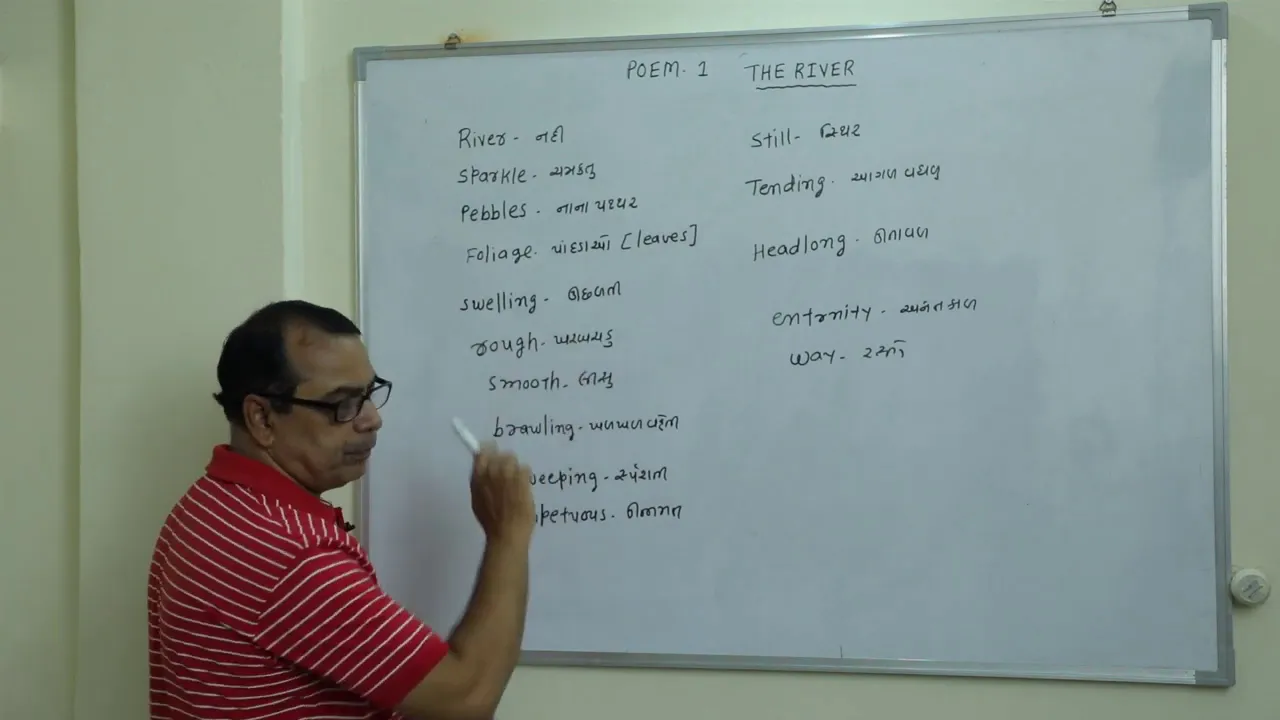 POEM. 1 THE RIVER
River - નદી
Sparkle - ચમકતુ
Pebbles - નાના પથ્થર
Foliage - પાંદડાઓ [leaves]
swelling - ઉછળતી
rough - ખરબચડુ
smooth - લીસુ
brawling - ખળખળ વહેતી
eeping -
petuous -
Still - સ્થિર
Tending - આગળ વધવુ
Headlong - ઉતાવળ
entrnity - અનંતકાળ
way - રસ્તો